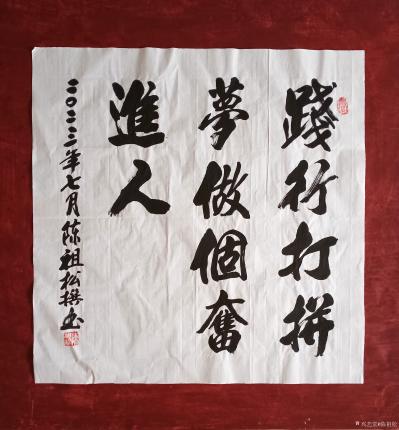 踐行打拼
夢做個奮
進人
二〇二三年七月陈祖松撰书